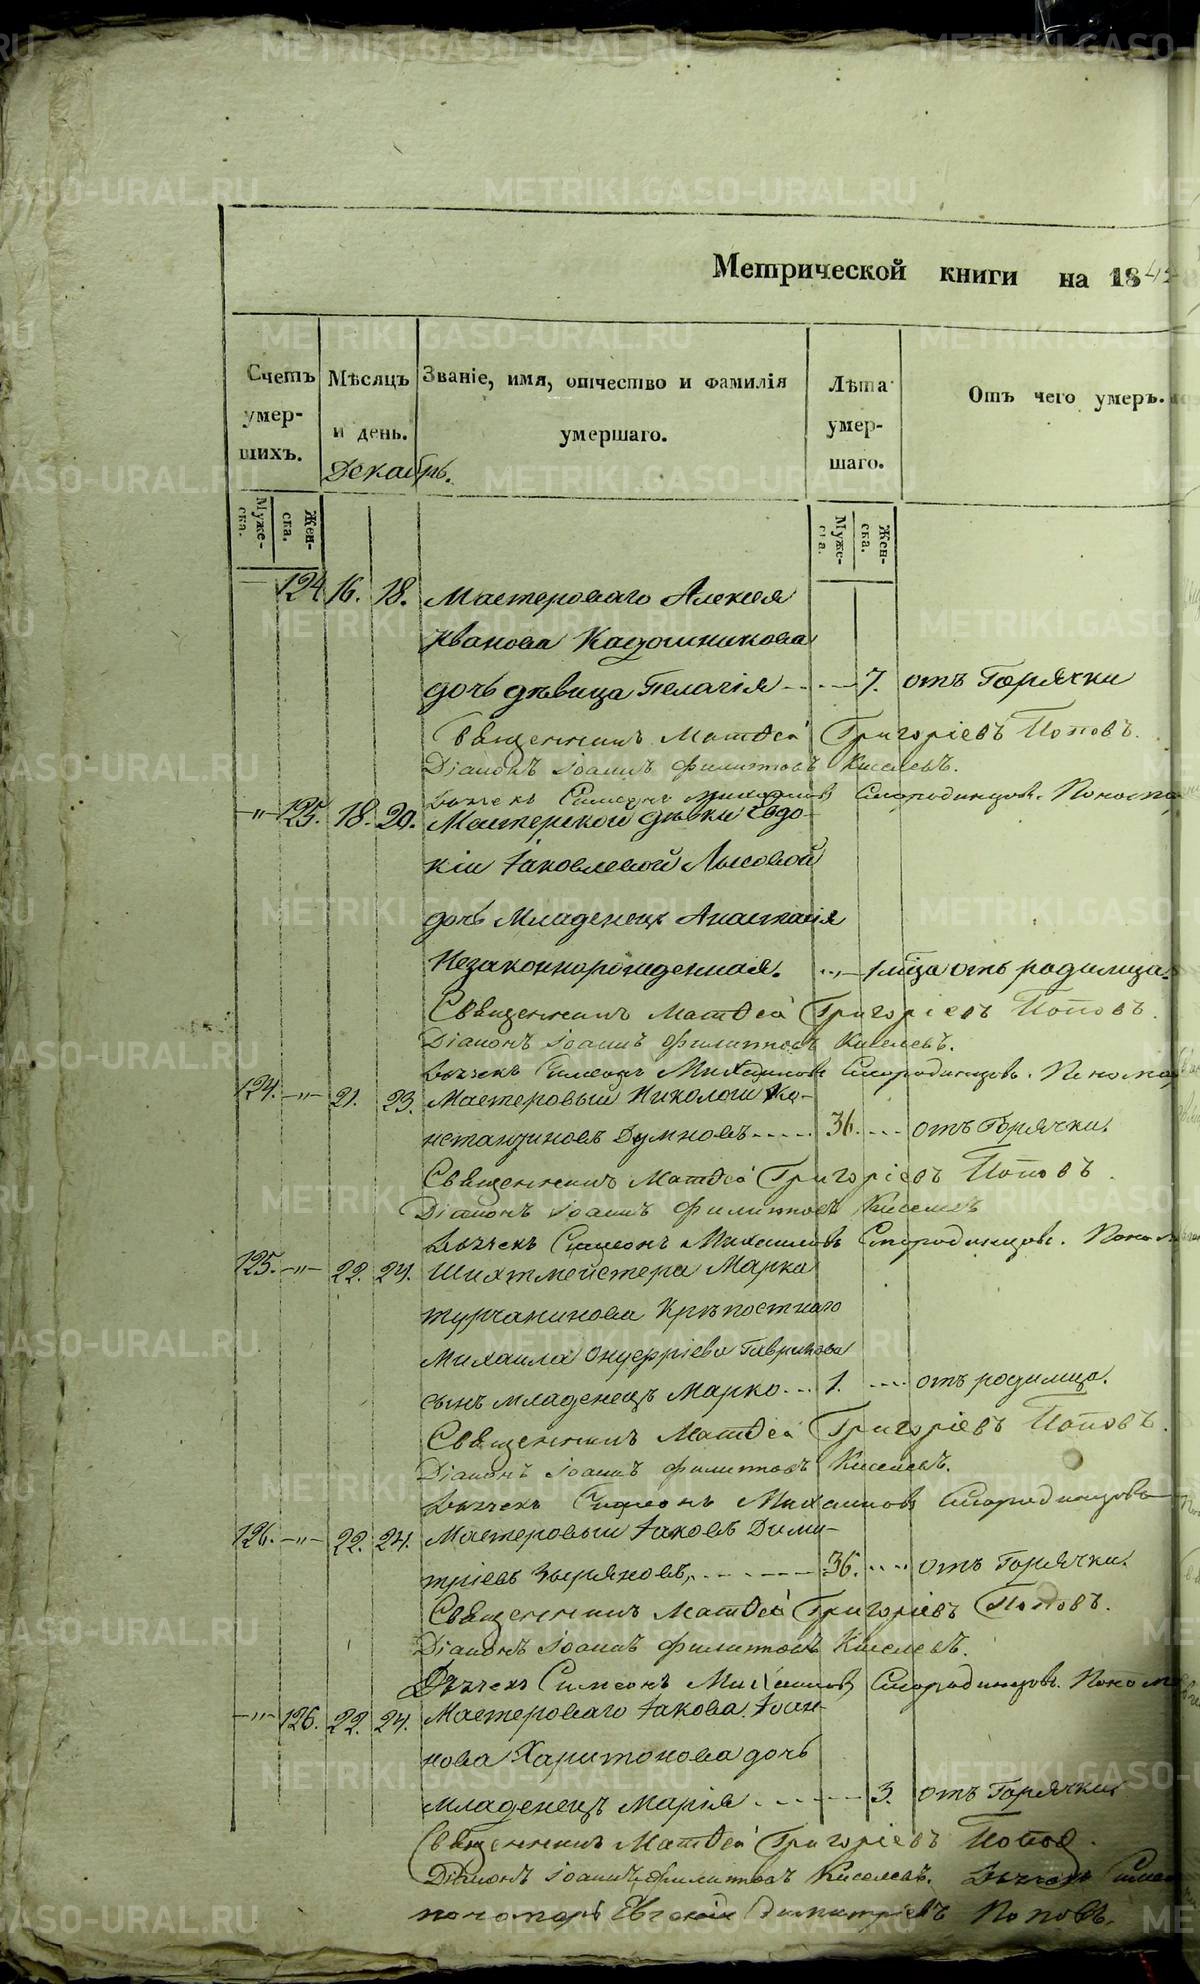 Метрической книги на 184
Счетъ умер- шихъ.
Мѣсяцъ и день.
Званіе, имя, отчество и фамилія умершаго.
Лѣта умер- шаго.
Отъ чего умеръ.
Декабрь.
Муже- ска.
Жен- ска.
Муже- ска.
Жен- ска.
124 16. 18. Мастероваго Алексея
Иванова Кадошникова
дочь дѣвица Пелагія 7. отъ Горячки
Священникъ Матѳей Григоріевъ Поповъ.
Діаконъ Іоаннъ Филиповъ Киселевъ.
Дьячекъ Симеонъ Михаиловъ Смородинцовъ. Понома
-"- 125. 18. 20. Мастерской дѣвки Евдо-
кіи Іаковлевой Лысовой
дочь Младенецъ Анастасія
Незаконнорожденная. 1 мца отъ родимца.
Священникъ Матѳей Григоріевъ Поповъ.
Діаконъ Іоаннъ Филиповъ Киселевъ.
Дьячекъ Симеонъ Михаиловъ Смородинцовъ. Понома
124. -"- 21. 23. Мастеровый Николай Ко-
нстантиновъ Думновъ 36. отъ Горячки.
Священникъ Матѳей Григоріевъ Поповъ.
Діаконъ Іоаннъ Филиповъ Киселевъ
Дьячекъ Симеонъ Михаиловъ Смородинцовъ. Поно
125. -"- 22. 24. Шихтмейстера Марка
Турчанинова Крѣпостнаго
Михаила Онуфріева Гаврилова
сынъ младенецъ Марко 1. отъ родимца.
Священникъ Матѳей Григоріевъ Поповъ.
Діаконъ Іоаннъ Филиповъ Киселевъ.
Дьячекъ Симеонъ Михаиловъ Смородинцовъ
126. -"- 22. 24. Мастеровый Іаковъ Дими-
тріевъ Зыряновъ, 36. отъ Горячки.
Священникъ Матѳей Григоріевъ Поповъ.
Діаконъ Іоаннъ Филиповъ Киселевъ.
Дьячекъ Симеонъ Михаиловъ Смородинцовъ. Поном
-"- 126. 22. 24. Мастероваго Іакова Іоан-
нова Харитонова дочь
младенецъ Марія 3. отъ Горячки.
Священникъ Матѳей Григоріевъ Попов.
Діаконъ Іоаннъ Филиповъ Киселевъ. Дьячекъ Симео
пономарь Евгеній Димитріевъ Поповъ.
METRIKI.GASO-URAL.RU